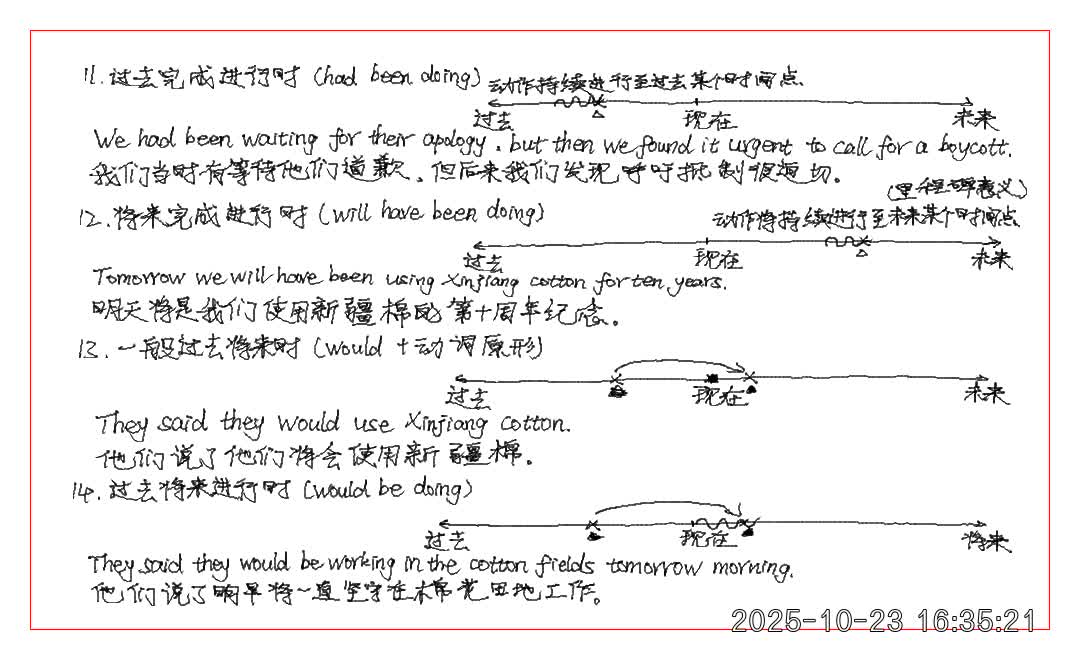 11. 过去完成进行时 (had been doing) 动作持续进行至过去某个时间点.
过去 现在 未来
We had been waiting for their apology, but then we found it urgent to call for a boycott.
我们当时有等待他们道歉, 但后来我们发现呼吁抵制很迫切。
(里程碑意义)
12. 将来完成进行时 (will have been doing) 动作将持续进行至未来某个时间点.
过去 现在 未来
Tomorrow we will have been using Xinjiang cotton for ten years.
明天将是我们使用新疆棉的第十周年纪念。
13. 一般过去将来时 (would + 动词原形)
过去 现在 未来
They said they would use Xinjiang cotton.
他们说了他们将会使用新疆棉。
14. 过去将来进行时 (would be doing)
过去 现在 将来
They said they would be working in the cotton fields tomorrow morning.
他们说了明早将一直坚守在棉花田地工作。
2025-10-23 16:35:21